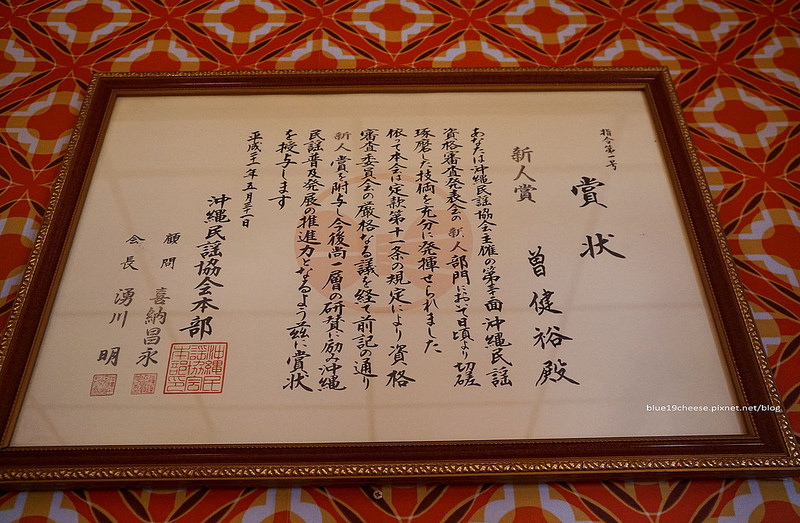 指令第一号
賞状
新人賞 曽健裕殿
あなたは沖縄民謡協会主催の第 回沖縄民謡
資格審査発表会の新人部門において日頃より切磋
琢磨した技術を充分に発揮せられました
依って本会は定款第十一条の規定により資格
審査委員会の厳格なる議を経て前記の通り
新人賞を附与し今後尚一層の研賛に励み沖縄
民謡普及発展の推進力となるよう茲に賞状
を授与します
平成 年五月 日
沖縄民謡協会本部
沖縄民
謡協会
本部印
顧問 喜納昌永
会長 湧川明
blue19cheese.pixnet.net/blog